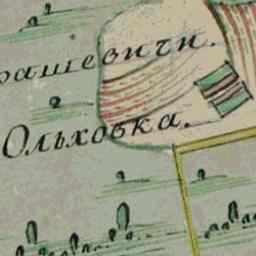 рашевичи.
Ольховка.